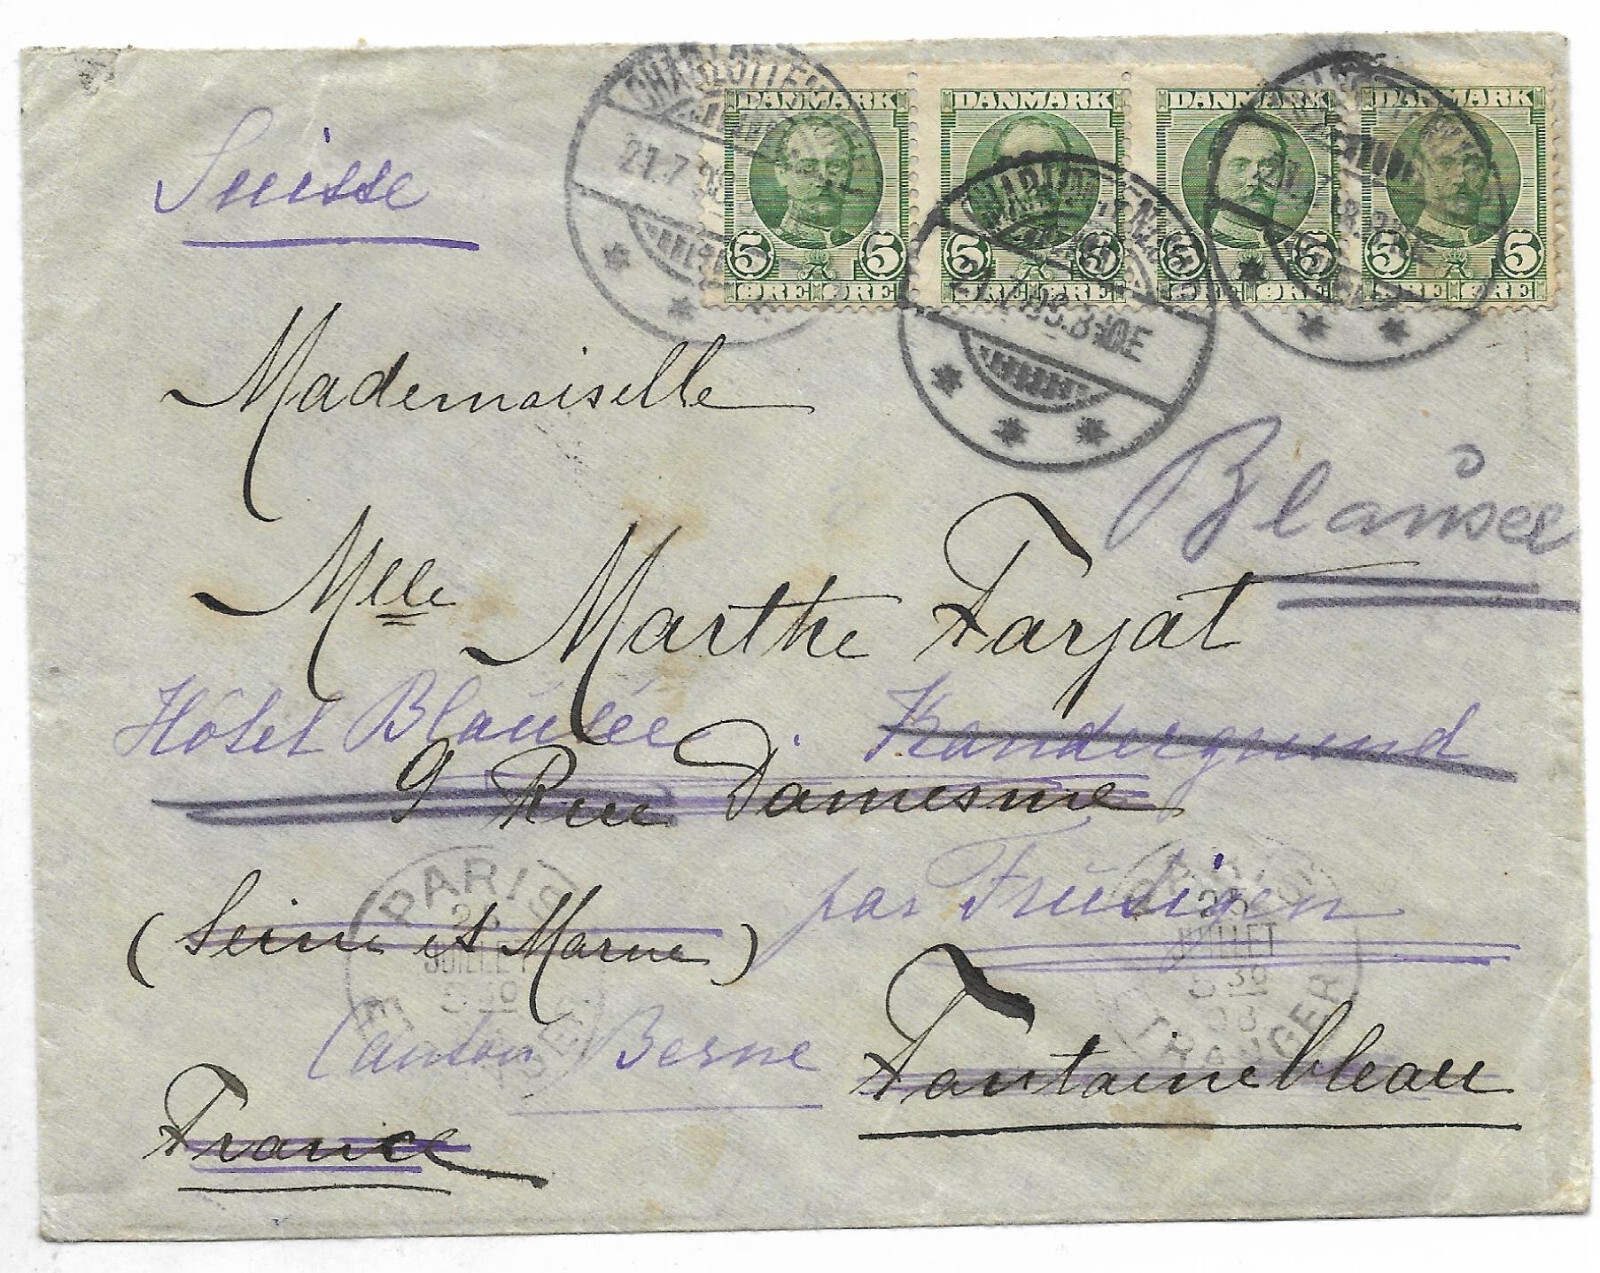 Suisse
DANMARK DANMARK DANMARK DANMARK
5 5 5 5 5 5 5
ØRE ØRE ØRE ØRE ØRE ØRE
21.7
Mademoiselle
Blausee
Mlle Marthe Farjat
Hôtel Blausée. Kandergrund
9 Rue Damesme
par Frutigen
(Seine et Marne)
PARIS
JUILLET
5 30
PARIS
25
JUILLET
5 30
08
ETRANGER
Canton Berne
Fontainebleau
France